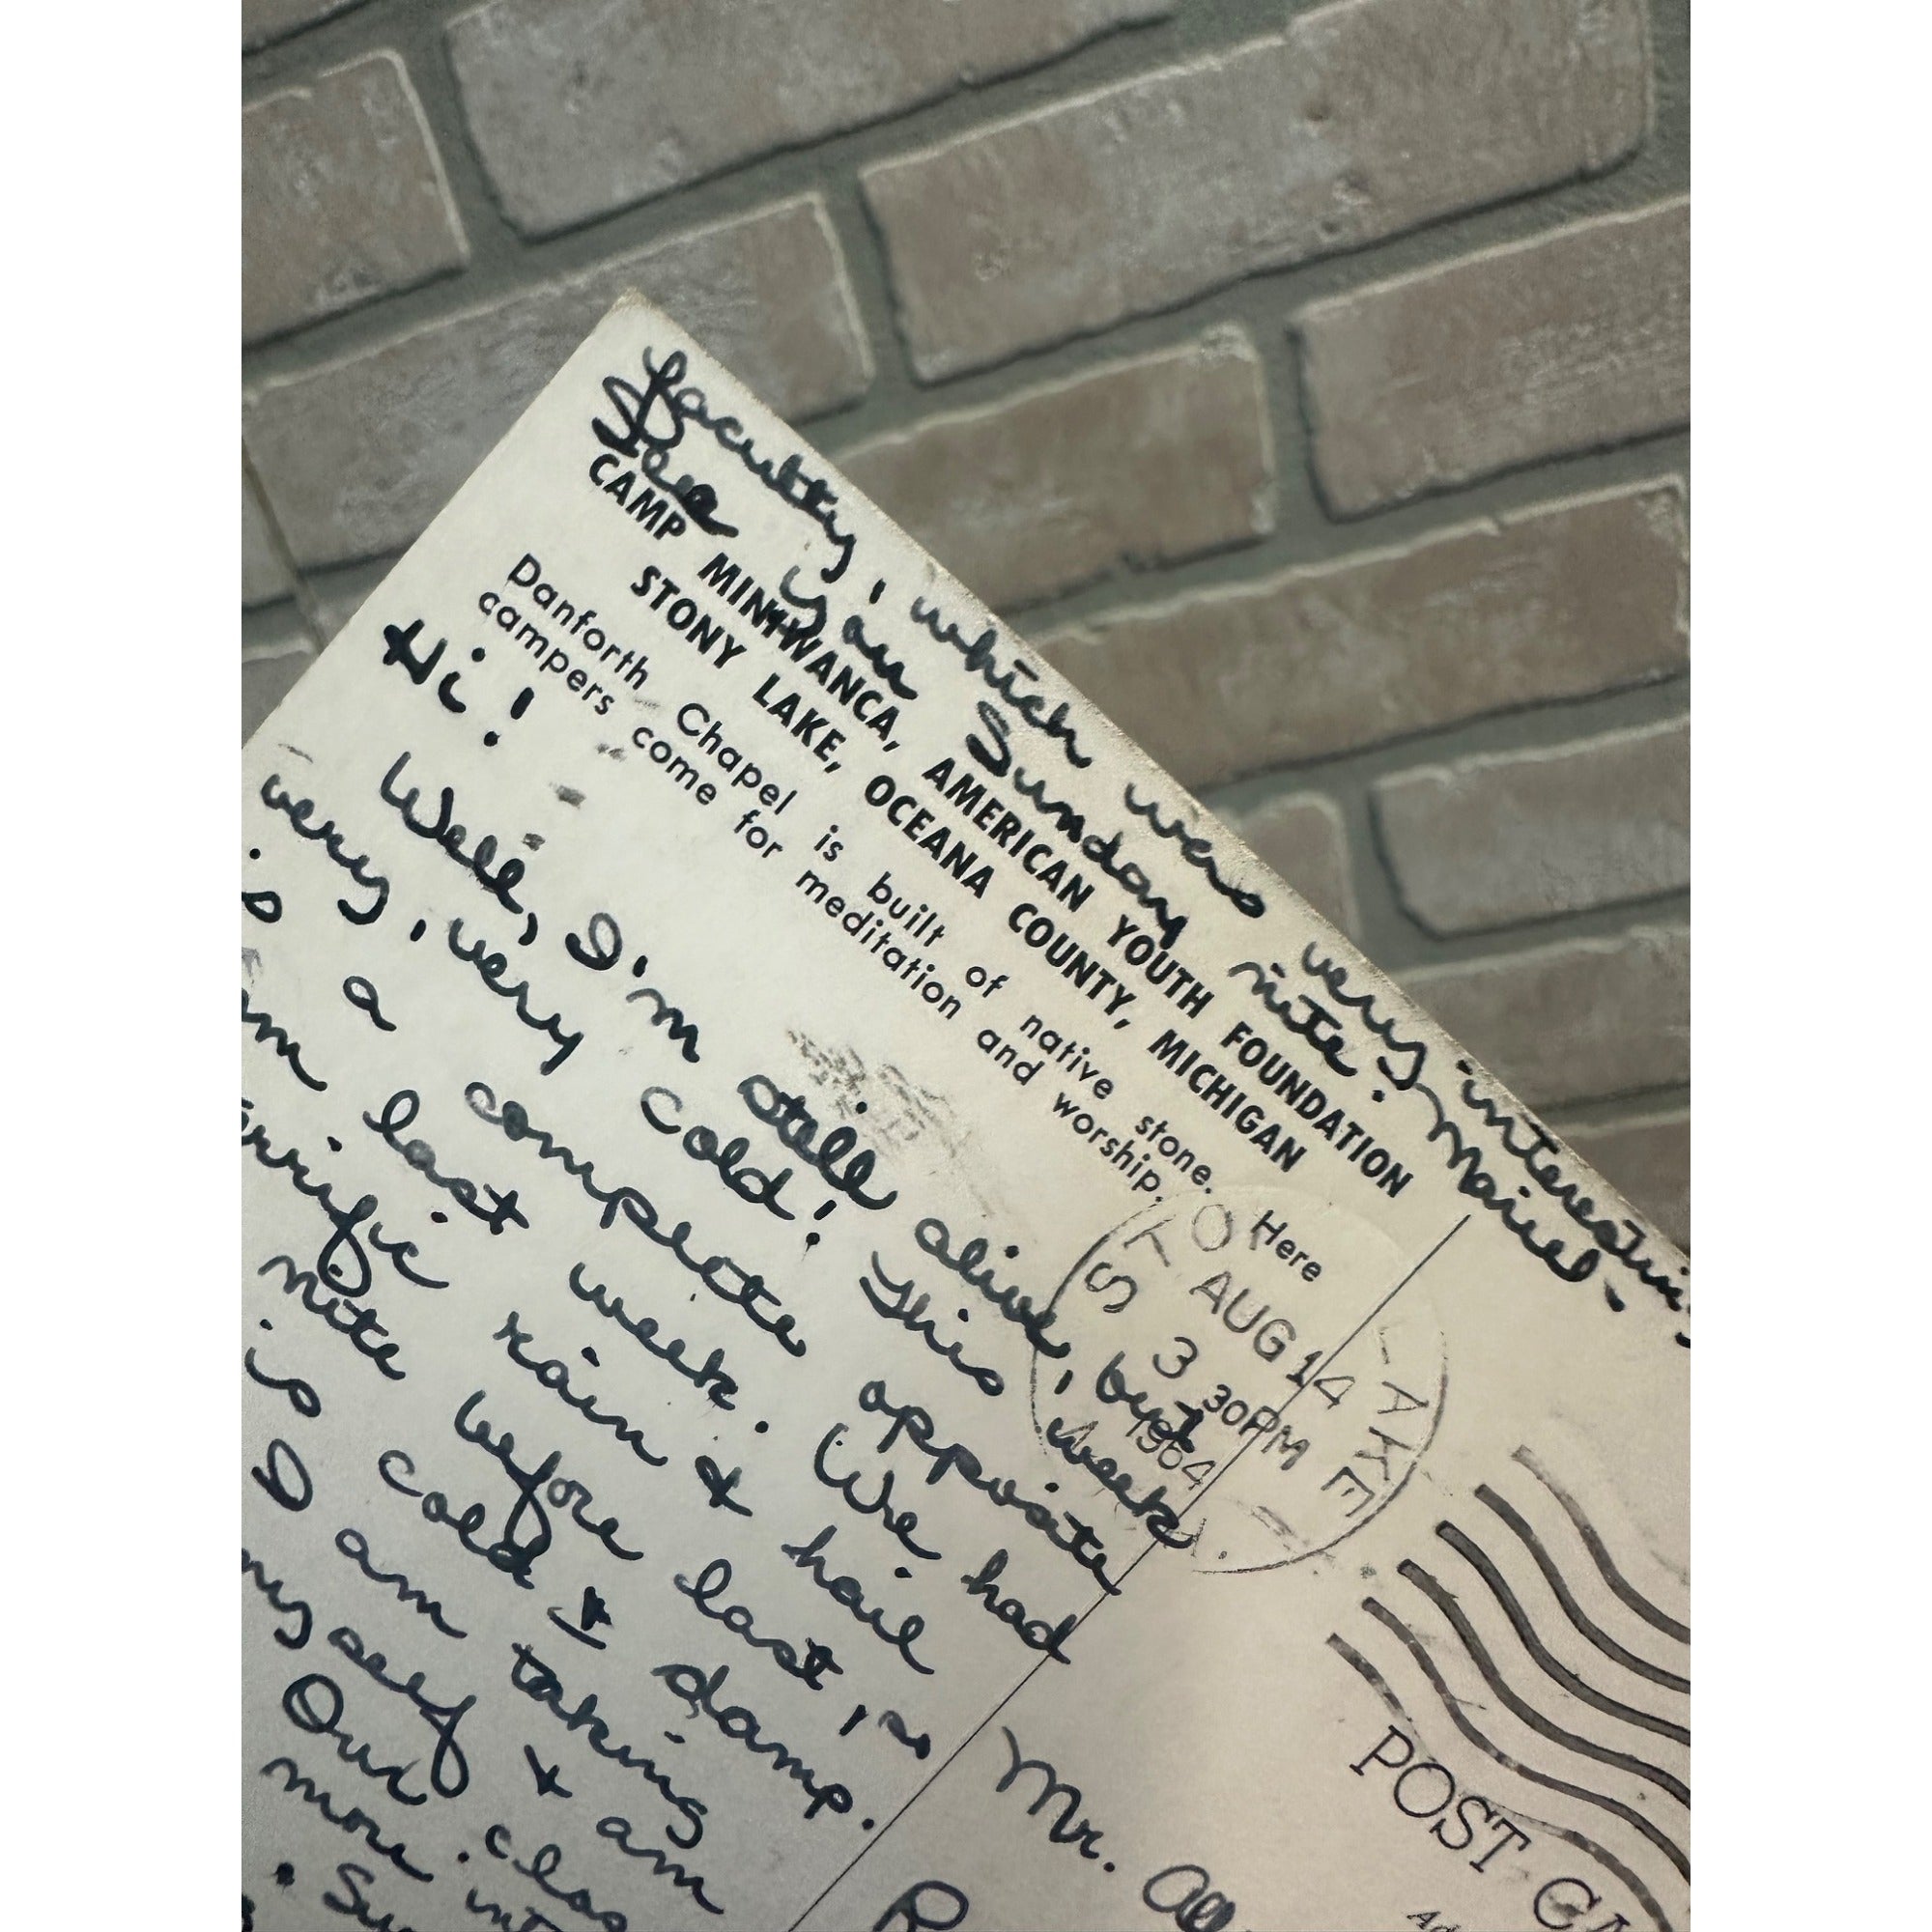 faculty, which was very interesting
See you Sunday nite.
CAMP MINIWANCA, AMERICAN YOUTH FOUNDATION
STONY LAKE, OCEANA COUNTY, MICHIGAN
Danforth Chapel is built of native stone. Here
campers come for meditation and worship.
Hi!
Well, I'm still alive, but
very, very cold! This week
is a complete opposite
last week. We had
rain & hail
nite before last, so
is cold & damp.
I am taking
& am
Our
more
AUG 14
3 30PM
1964
LAKE
POST CA
Mr.